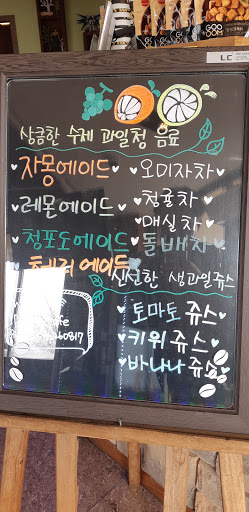 상큼한 수제 과일청 음료
자몽에이드
레몬에이드
청포도에이드
체리에이드
오미자차
청귤차
매실차
돌배차
신선한 생과일쥬스
토마토 쥬스
키위 쥬스
바나나 쥬스